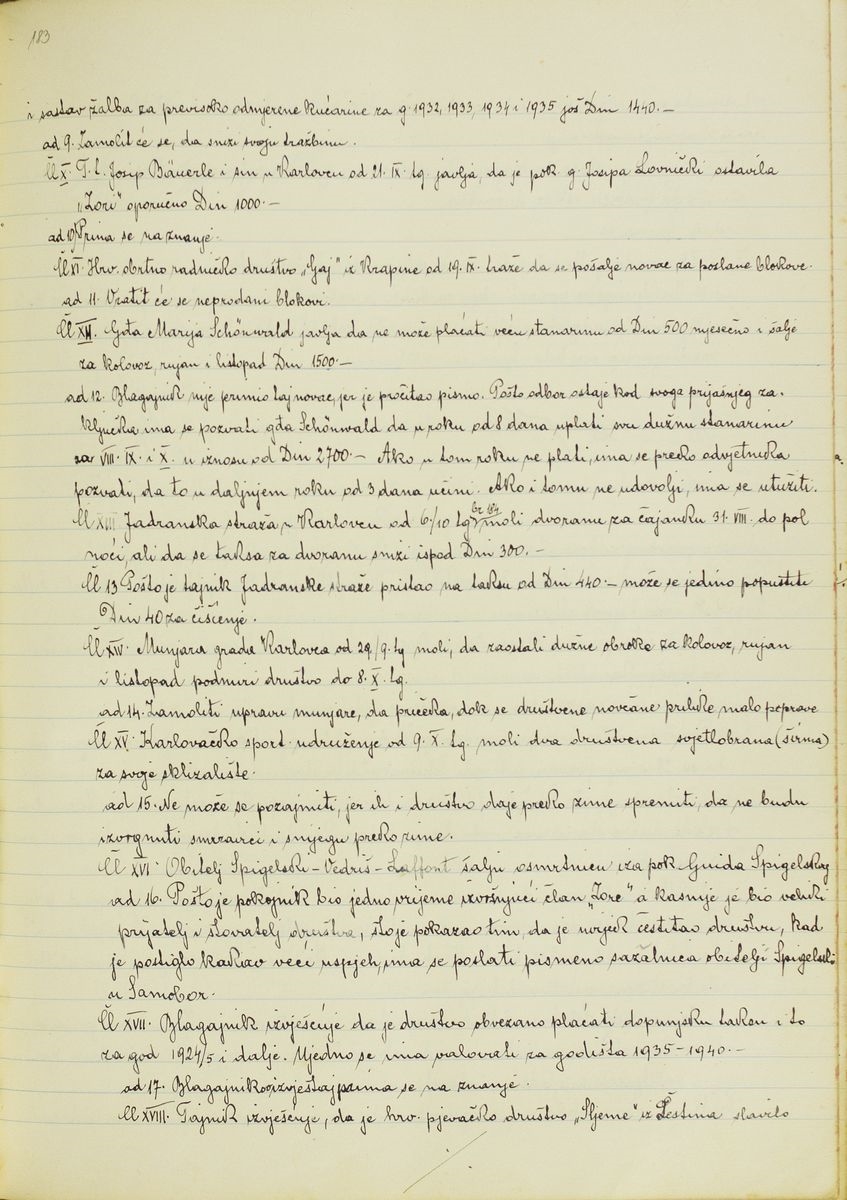 183
i sastav žalba za previsoko odmjerene kućarine za g. 1932, 1933, 1934 i 1935 još Din 1440.—
ad 9. Zamolit će se, da snizi svoju tražbinu.
Čl X. T. t. Josip Bäuerle i sin u Karlovcu od 21. IX. tg. javlja, da je pok. g. Josipa Lovnički ostavila
„Zori" oporučno Din 1000.—
ad 10. Prima se na znanje.
Čl XI. Hrv. obrtno radničko društvo „Gaj" iz Krapine od 19. IX. traže da se pošalje novac za poslane blokove.
ad 11. Vratit će se neprodani blokovi.
Čl XII. Gđa Marija Schönwald javlja da ne može plaćati veću stanarinu od Din 500 mjesečno i šalje
za kolovoz, rujan i listopad Din 1500.—
ad 12. Blagajnik nije primio taj novac, jer je pročitao pismo. Pošto odbor ostaje kod svoga prijašnjeg za-
ključka ima se pozvati gđa Schönwald da u roku od 8 dana uplati svu dužnu stanarinu
za VIII. IX. i X. u iznosu od Din 2700.— Ako u tom roku ne plati, ima se preko odvjetnika
pozvati, da to u daljnjem roku od 3 dana učini. Ako i tomu ne udovolji, ima se utužiti.
Čl XIII Jadranska straža u Karlovcu od 6./10 tg. moli dvoranu za čajanku 31. VIII. do pol
noći, ali da se taksa za dvoranu snizi ispod Din 300.—
Čl 13 Pošto je tajnik Jadranske straže pristao na taksu od Din 440.— može se jedino popustiti
Din 40 za čišćenje.
Čl XIV. Munjara grada Karlovca od 29/9. tg moli, da zaostali dužne obroke za kolovoz, rujan
i listopad podmiri društvo do 8. X. tg.
ad 14. Zamoliti upravu munjare, da pričeka, dok se društvene novčane prilike malo poprave
Čl XV. Karlovačko sport. udruženje od 9. X. tg. moli dva društvena svjetlobrana (širma)
za svoje sklizalište.
ad 15. Ne može se pozajmiti, jer ih i društvo daje preko zime spremiti, da ne budu
izvrgnuti smrzavici i snijegu preko zime.
Čl XVI. Obitelj Spigelski – Vedriš – Laffont šalju osmrtnicu iza pok Guida Spigelskog
ad 16. Pošto je pokojnik bio jedno vrijeme izvršujući član „Zore" a kasnije je bio veliki
prijatelj i štovatelj društva, što je pokazao tim, da je uvijek čestitao društvu, kad
je postiglo kakav veći uspjeh, ima se poslati pismeno sažalnica obitelji Spigelski
u Samobor.
Čl XVII. Blagajnik izvješćuje da je društvo obvezano plaćati dopunjsku taksu i to
za god 1924/5 i dalje. Ujedno se ima valovati za godišta 1935 – 1940.—
ad 17. Blagajnikov izvještaj prima se na znanje.
Čl XVIII. Tajnik izvješćuje, da je hrv. pjevačko društvo „Sljeme" iz Šestina slavilo